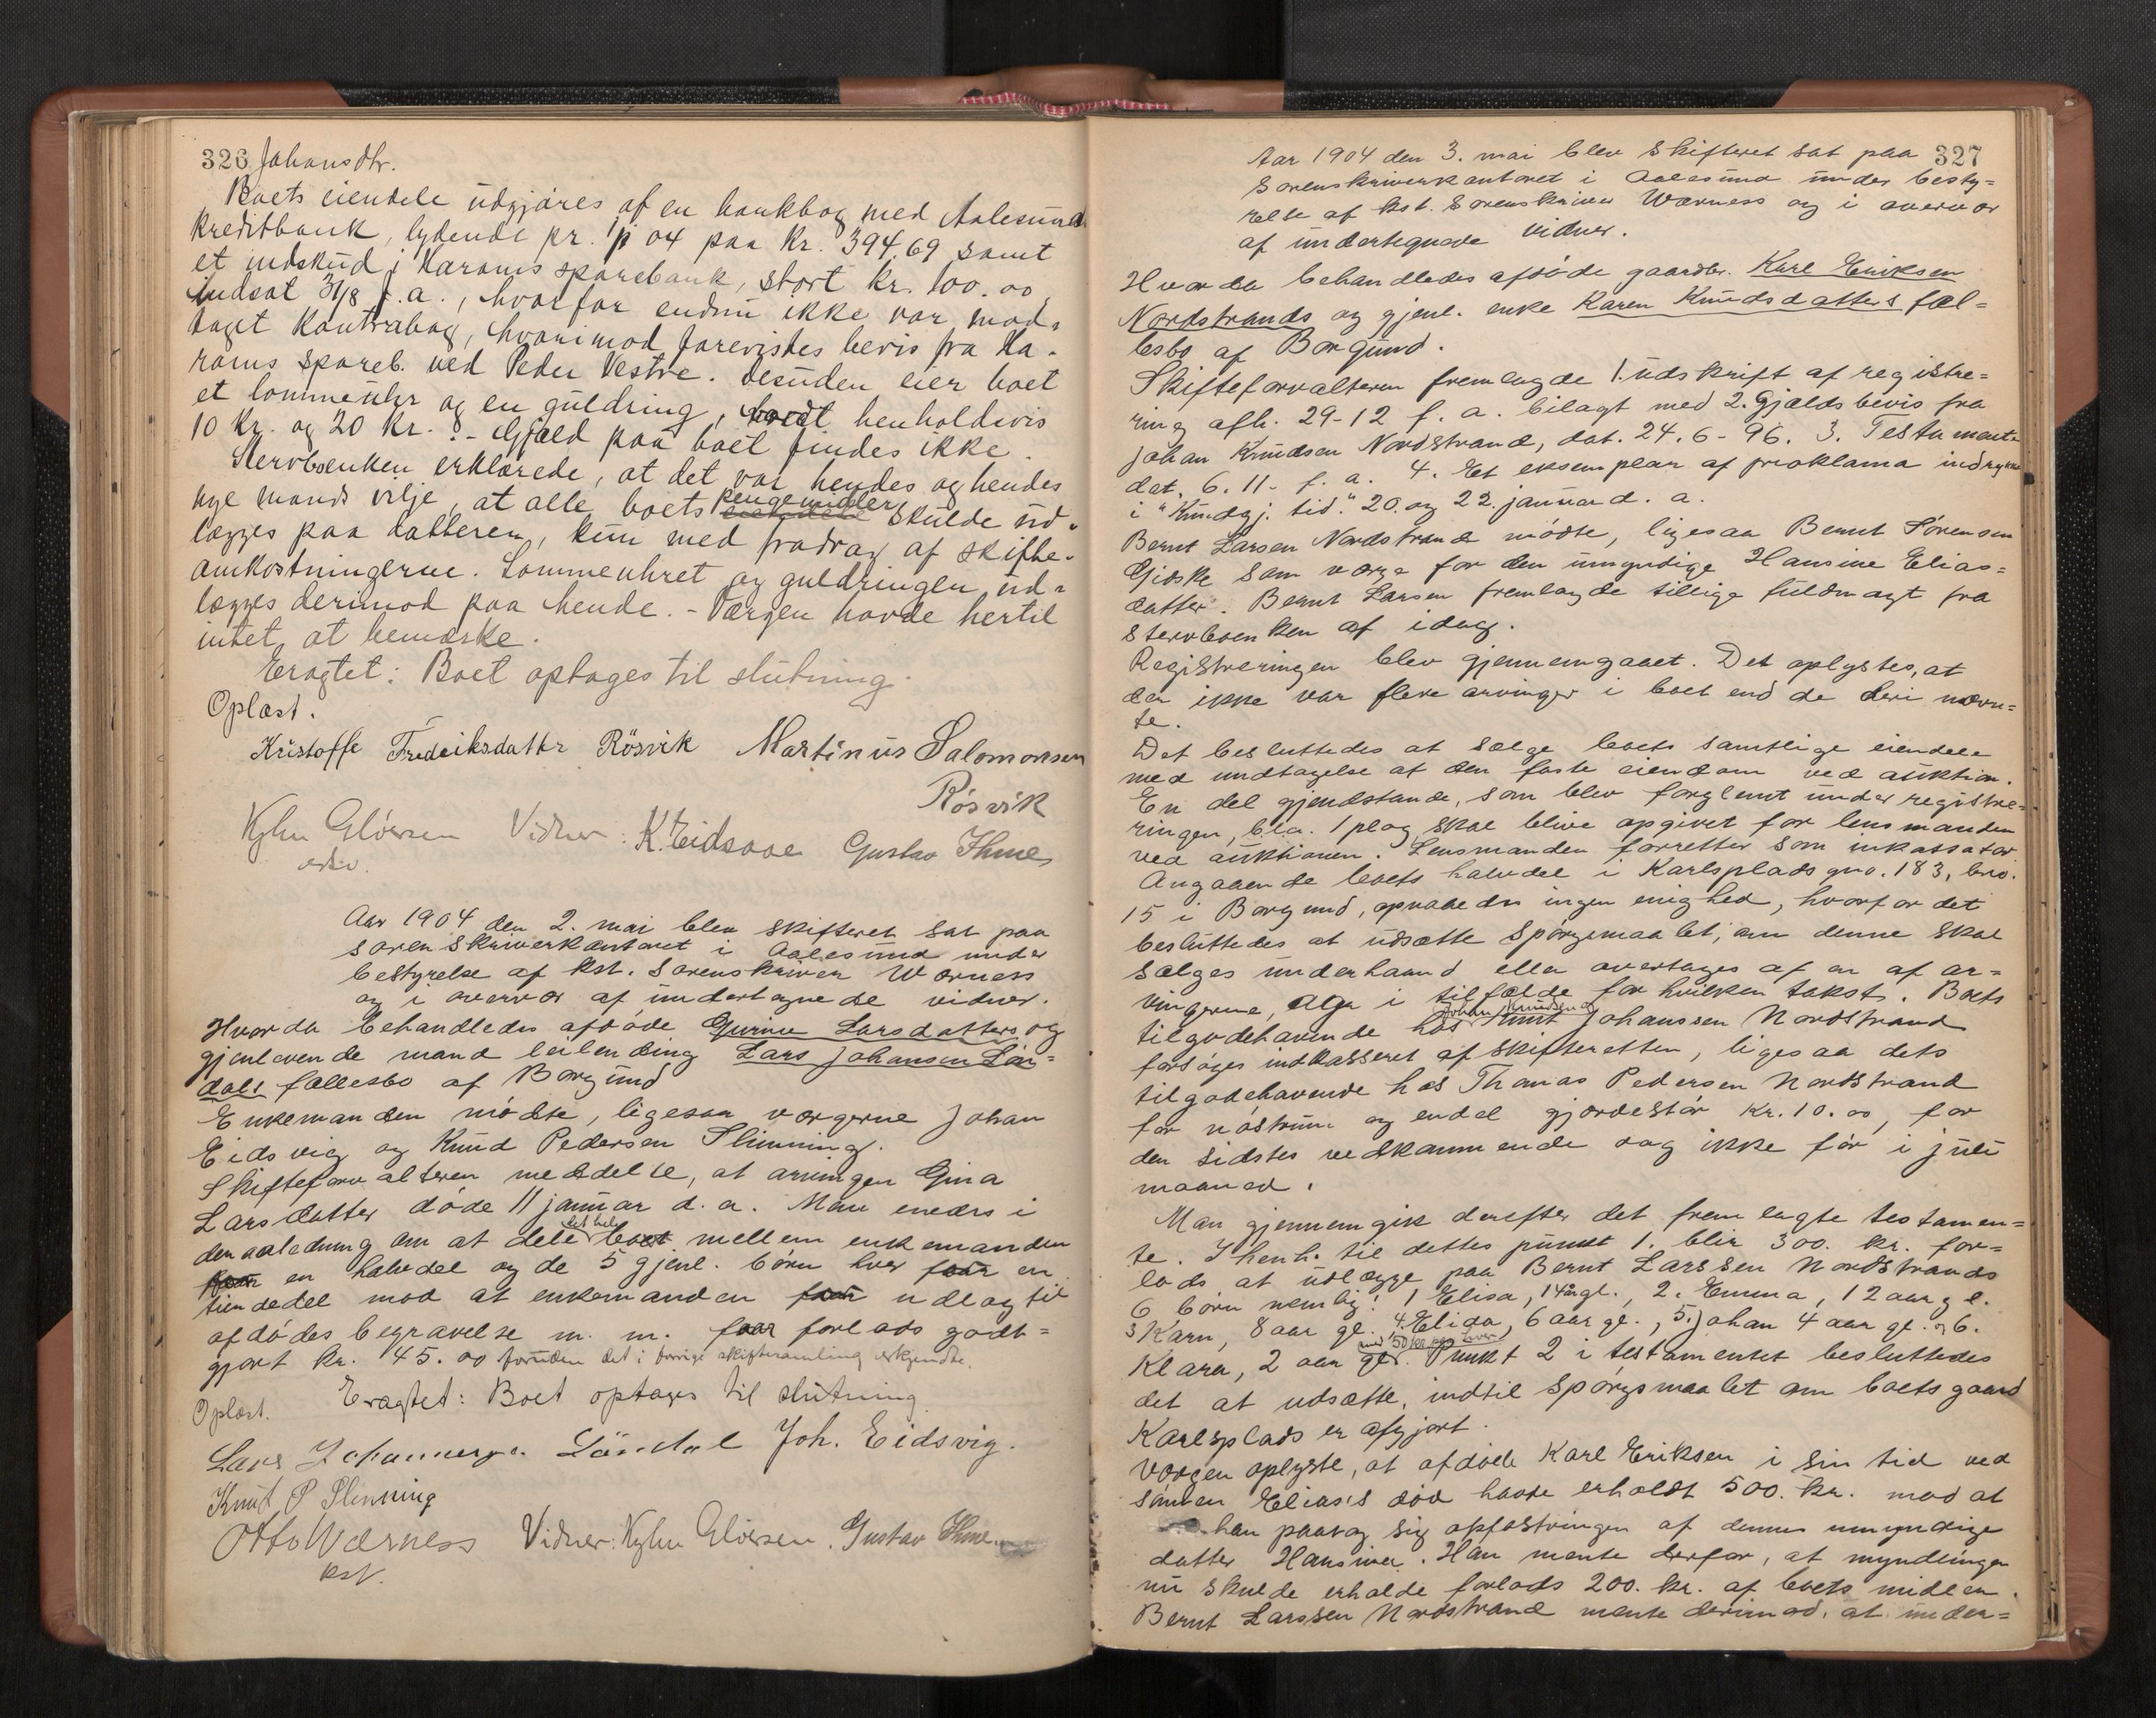 326 Johansdtr.
Boets eiendele udgjøres af en bankbog med Aalesunds
kreditbank, lydende pr. 1/1 04 paa kr. 394.69 samt
et indskud i Harams sparebank, stort kr. 100.00,
indsat 31/8 f.a., hvorfor endnu ikke var mod-
taget kontrabog, hvorimod forevistes bevis fra Ha-
rams spareb. ved Peder Vestre. Desuden eier boet
et lommeuhr og en guldring, værdt henholdsvis
10 kr. og 20 kr. - Gjæld paa boet findes ikke.
Stervboenken erklærede, at det var hendes og hendes
mands vilje, at alle boets eiendele pengemidler skulde ud-
lægges paa datteren, kun med fradrag af skifte-
omkostningerne. Lommeuhret og guldringen ud-
lægges derimod paa hende. - Værgen havde hertil
intet at bemærke.
Eragtet: Boet optages til slutning.
Oplæst.
Kristoffe Frederiksdatter Rösvik Martinus Salomonsen
Rösvik
Vidner: K. Eidsaae Gustav Ihme
Aar 1904 den 2. mai blev skifteret sat paa
sorenskriverkontoret i Aalesund under
bestyrelse af kst. sorenskriver Wærness
og i overvær af undertegnede vidner.
Hvorda behandledes afdøde Gurine Larsdatters og
gjenlevende mand leilending Lars Johansen Lån-
dals fællesbo af Borgund
Enkemanden mødte, ligesaa værgerne Johan
Eidsvig og Knud Pedersen Slinning.
Skifteforvalteren meddelte, at arvingen Gina
Larsdatter døde 11 januar d.a. Man enedes i
den anledning om at dele det hele boet mellem enkemanden
faar en halvdel og de 5 gjenl. børn hver faar en
tiendedel mod at enkemanden faar udlag til
afdødes begravelse m. m. faar forlods godt-
gjort kr. 45.00 foruden det i forrige skiftesamling erkjendte.
Oplæst. Eragtet: Boet optages til slutning
Lars Johannesen Låndal Joh. Eidsvig.
Knut P Slinning
Otto Wærness Vidner: Gustav Ihme
kst.
327
Aar 1904 den 3. mai blev skifteret sat paa
sorenskriverkontoret i Aalesund under besty-
relse af kst. sorenskriver Wærness og i overvær
af undertegnede vidner.
Hvorda behandledes afdøde gaardbr. Karl Eriksen
Nordstrands og gjenl. enke Karen Knudsdatters fæl-
lesbo af Borgund.
Skifteforvalteren fremlagde 1. udskrift af registre-
ring afh. 29-12 f. a. bilagt med 2. Gjældsbevis fra
Johan Knudsen Nordstrand, dat. 24.6-96. 3. Testamente
dat. 6.11- f. a. 4. Et eksemplar af proklama indrykket
i "Kundgj. tid." 20. og 22. januar d. a.
Bernt Larsen Nordstrand mødte, ligesaa Bernt Sørensen
Gjøske som værge for den umyndige Hansine Elias-
datter. Bernt Larsen fremlagde tillige fuldmagt fra
stervboenken af idag.
Registreringen blev gjennemgaaet. Det oplystes, at
der ikke var flere arvinger i boet end de deri nævn-
te.
Det besluttedes at sælge boets samtlige eiendele
med undtagelse af den faste eiendom ved auktion.
En del gjendstande, som blev forglemt under registre-
ringen, bl.a. 1 plog skal blive opgivet for lensmanden
ved auktionen. Lensmanden forretter som inkassator.
Angaaende boets halvdel i Karlsplads gno. 183, bno.
15 i Borgund, opnaaedes ingen enighed, hvorfor det
besluttedes at udsætte spørgsmaalet, om denne skal
sælges underhaand eller overtages af en af ar-
vingerne, og i tilfælde for hvilken takst. Boets
tilgodehavende hos Johan Knudsen og Knut Johanssen Nordstrand
forsøges indkasseret af skifteretten, ligesaa dets
tilgodehavende hos Thomas Pedersen Nordstrand
for nøstrum og endel gjærdestør kr. 10.00, for
den sidstes vedkommende dog ikke før i juli
maaned.
Man gjennemgik derefter det fremlagte testamen-
te. I henh. til dettes punkt 1. blir 300. kr. for-
lods at udlægge paa Bernt Larssen Nordstrands
6 børn nemlig: 1 Elisa, 14 aar gl., 2. Emma, 12 aar gl.
3 Karn, 8 aar gl. 4. Elida, 6 aar gl., 5. Johan 4 aar gl. og 6.
Klara, 2 aar gl. med 50 kr. paa hver. Punkt 2 i testamentet besluttedes
det at udsætte, indtil spørgsmaalet om boets gaard
Karlsplads er afgjort.
Værgen oplyste, at afdøde Karl Eriksen i sin tid ved
sønnen Elias's død havde erholdt 500. kr. mod at
han paatog sig opfostringen af dennes umyndige
datter Hansine. Han mente derfor, at myndlingen
nu skulde erholde forlods 200. kr. af boets midler.
Bernt Larssen Nordstrand mente derimod, at under-